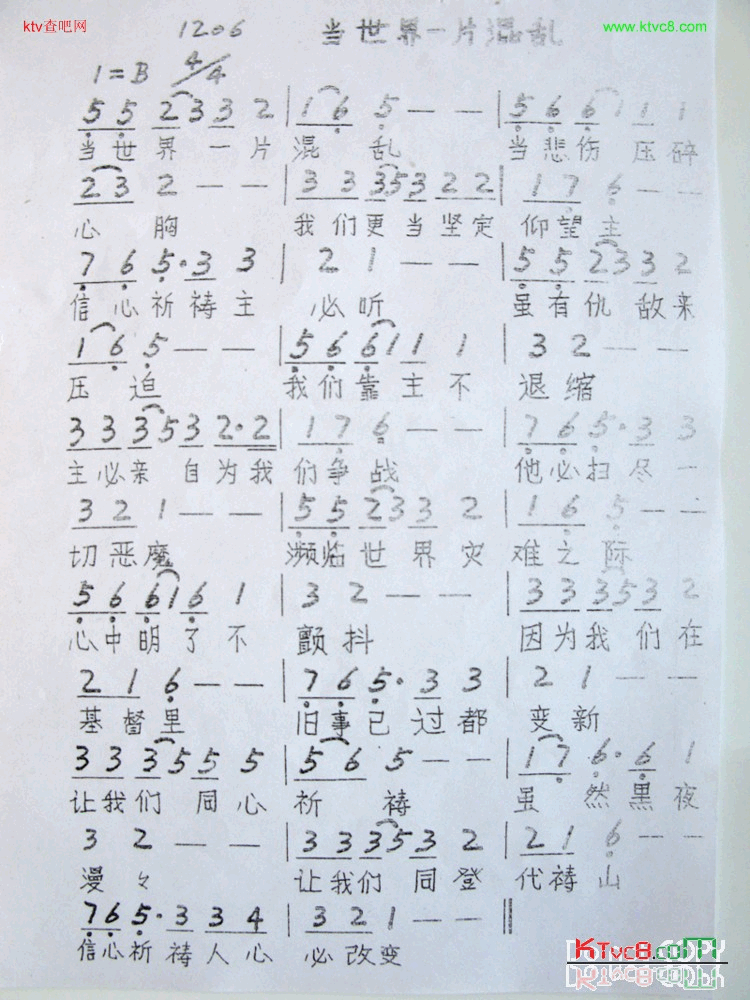 ktv查吧网
www.ktvc8.com
1206 当世界一片混乱
1=B 4/4
5 5 2 3 3 2 | 1 6 5 — — | 5 6 6 1 1 1
当世界一片 混乱 当悲伤压碎
2 3 2 — — | 3 3 3 5 3 2 2 | 1 7 6 — —
心胸 我们更当坚定 仰望主
7 6 5 · 3 3 | 2 1 — — | 5 5 2 3 3 2
信心祈祷主 必听 虽有仇敌来
1 6 5 — — | 5 6 6 1 1 1 | 3 2 — —
压迫 我们靠主不 退缩
3 3 3 5 3 2 · 2 | 1 7 6 — — | 7 6 5 · 3 3
主必亲自为我 们争战 他必扫尽一
3 2 1 — — | 5 5 2 3 3 2 | 1 6 5 — —
切恶魔 濒临世界灾 难之际
5 6 6 1 6 1 | 3 2 — — | 3 3 3 5 3 2
心中明了不 颤抖 因为我们在
2 1 6 — — | 7 6 5 · 3 3 | 2 1 — —
基督里 旧事已过都 变新
3 3 3 5 5 5 | 5 6 5 — — | 1 7 6 · 6 1
让我们同心 祈祷 虽然黑夜
3 2 — — | 3 3 3 5 3 2 | 2 1 6 — —
漫々 让我们同登 代祷山
7 6 5 · 3 3 4 | 3 2 1 — — ‖
信心祈祷人心 必改变
KTvc8.com